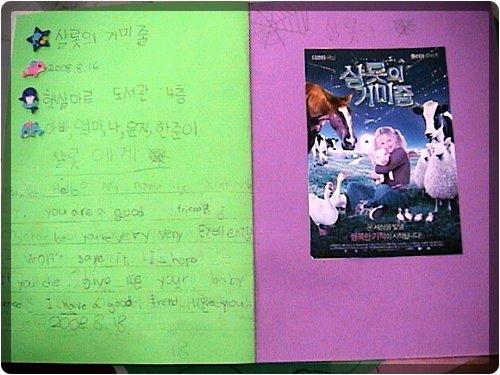 샬롯의 거미줄
2008.8.16
햇살마루 도서관 4층
아빠, 엄마, 나, 윤지, 한준이
샬롯에게
Hello? My name is
you are a good friend
you very very Exellent
won't save it. I hope
you die. give me your baby
I have a good friend like you..
2008.8.18
18
샬롯의
다코타
줄리아
샬롯의
거미줄
온 세상을 빛낼
행복한 기적이 시작됩니다!